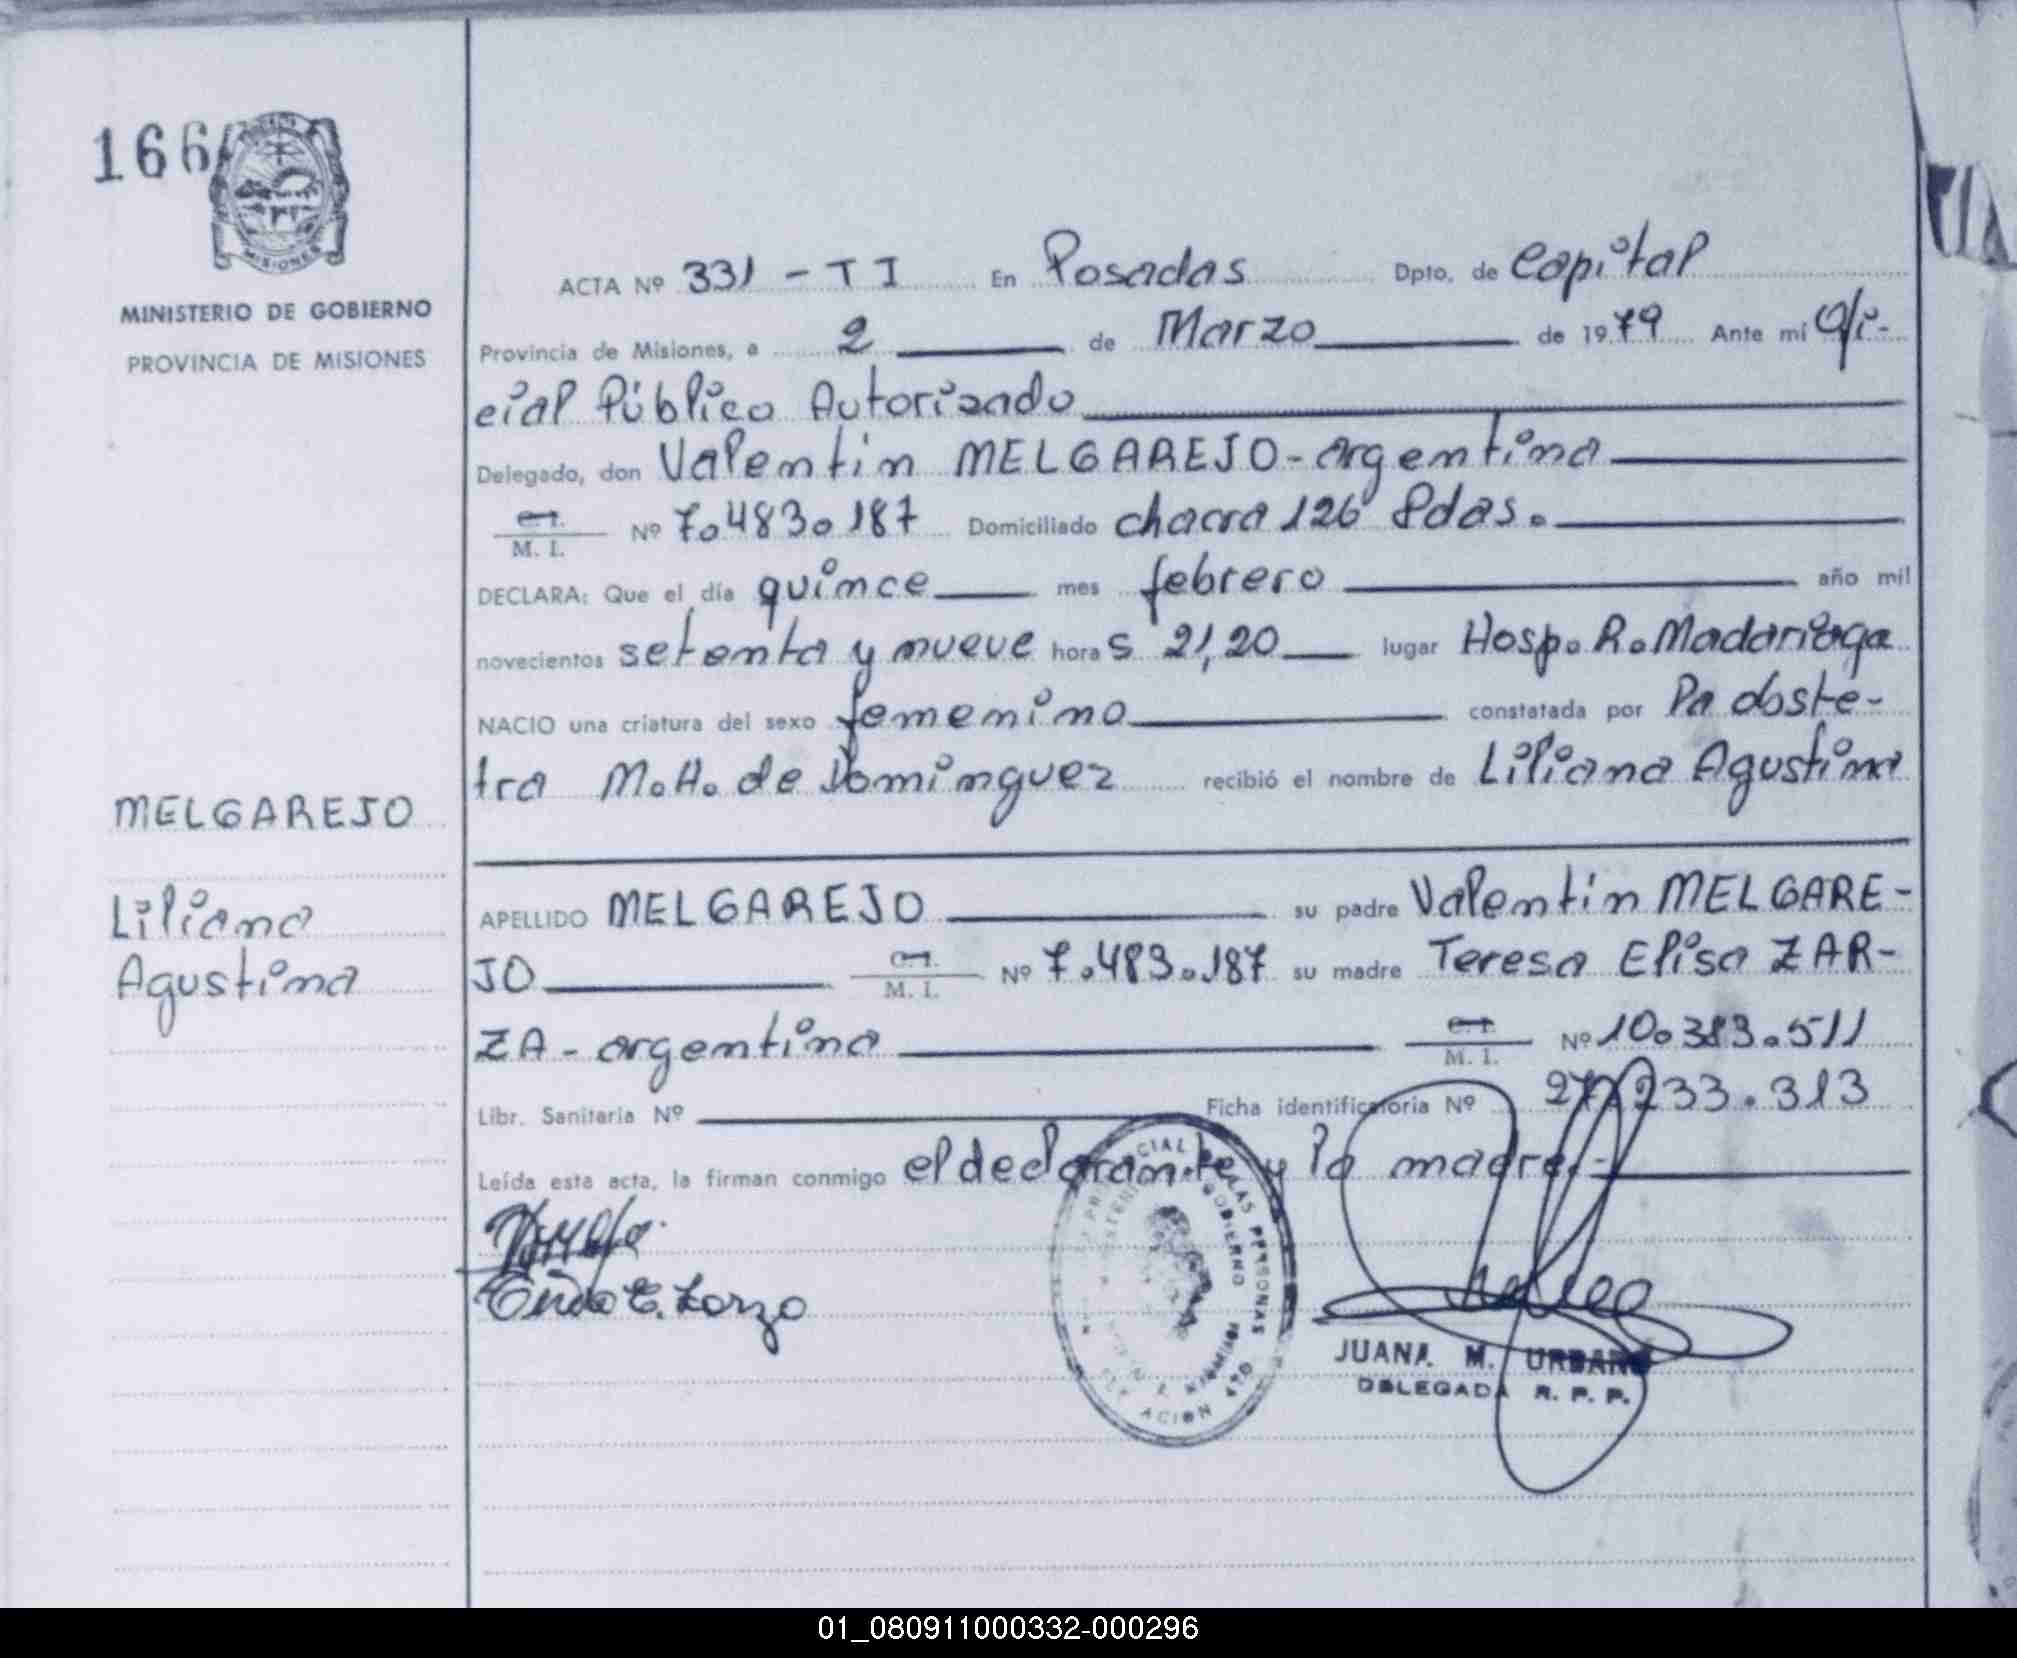 166
MISIONES
MINISTERIO DE GOBIERNO
PROVINCIA DE MISIONES
MELGAREJO
Liliana
Agustina
ACTA Nº 331 - T I En Posadas Dpto. de Capital
Provincia de Misiones, a 2 de Marzo de 1979 Ante mi Ofi-
cial Público Autorizado
Delegado, don Valentin MELGAREJO - argentino
C.I. M. I. Nº 7.483.187 Domiciliado chacra 126 Pdas.
DECLARA: Que el día quince mes febrero año mil
novecientos setenta y nueve horas 21,20 lugar Hosp. R. Madariaga
NACIO una criatura del sexo femenino constatada por la obste-
tra M. H. de Dominguez recibió el nombre de Liliana Agustina
APELLIDO MELGAREJO su padre Valentin MELGARE-
JO C.I. M. I. Nº 7.483.187 su madre Teresa Elisa ZAR-
ZA - argentina C.I. M. I. Nº 10.383.511
Libr. Sanitaria Nº Ficha identificatoria Nº 27.233.313
Leída esta acta, la firman conmigo el declarante y la madre.-
JUANA M. URBANO
DELEGADA R. P. P.
01_080911000332-000296